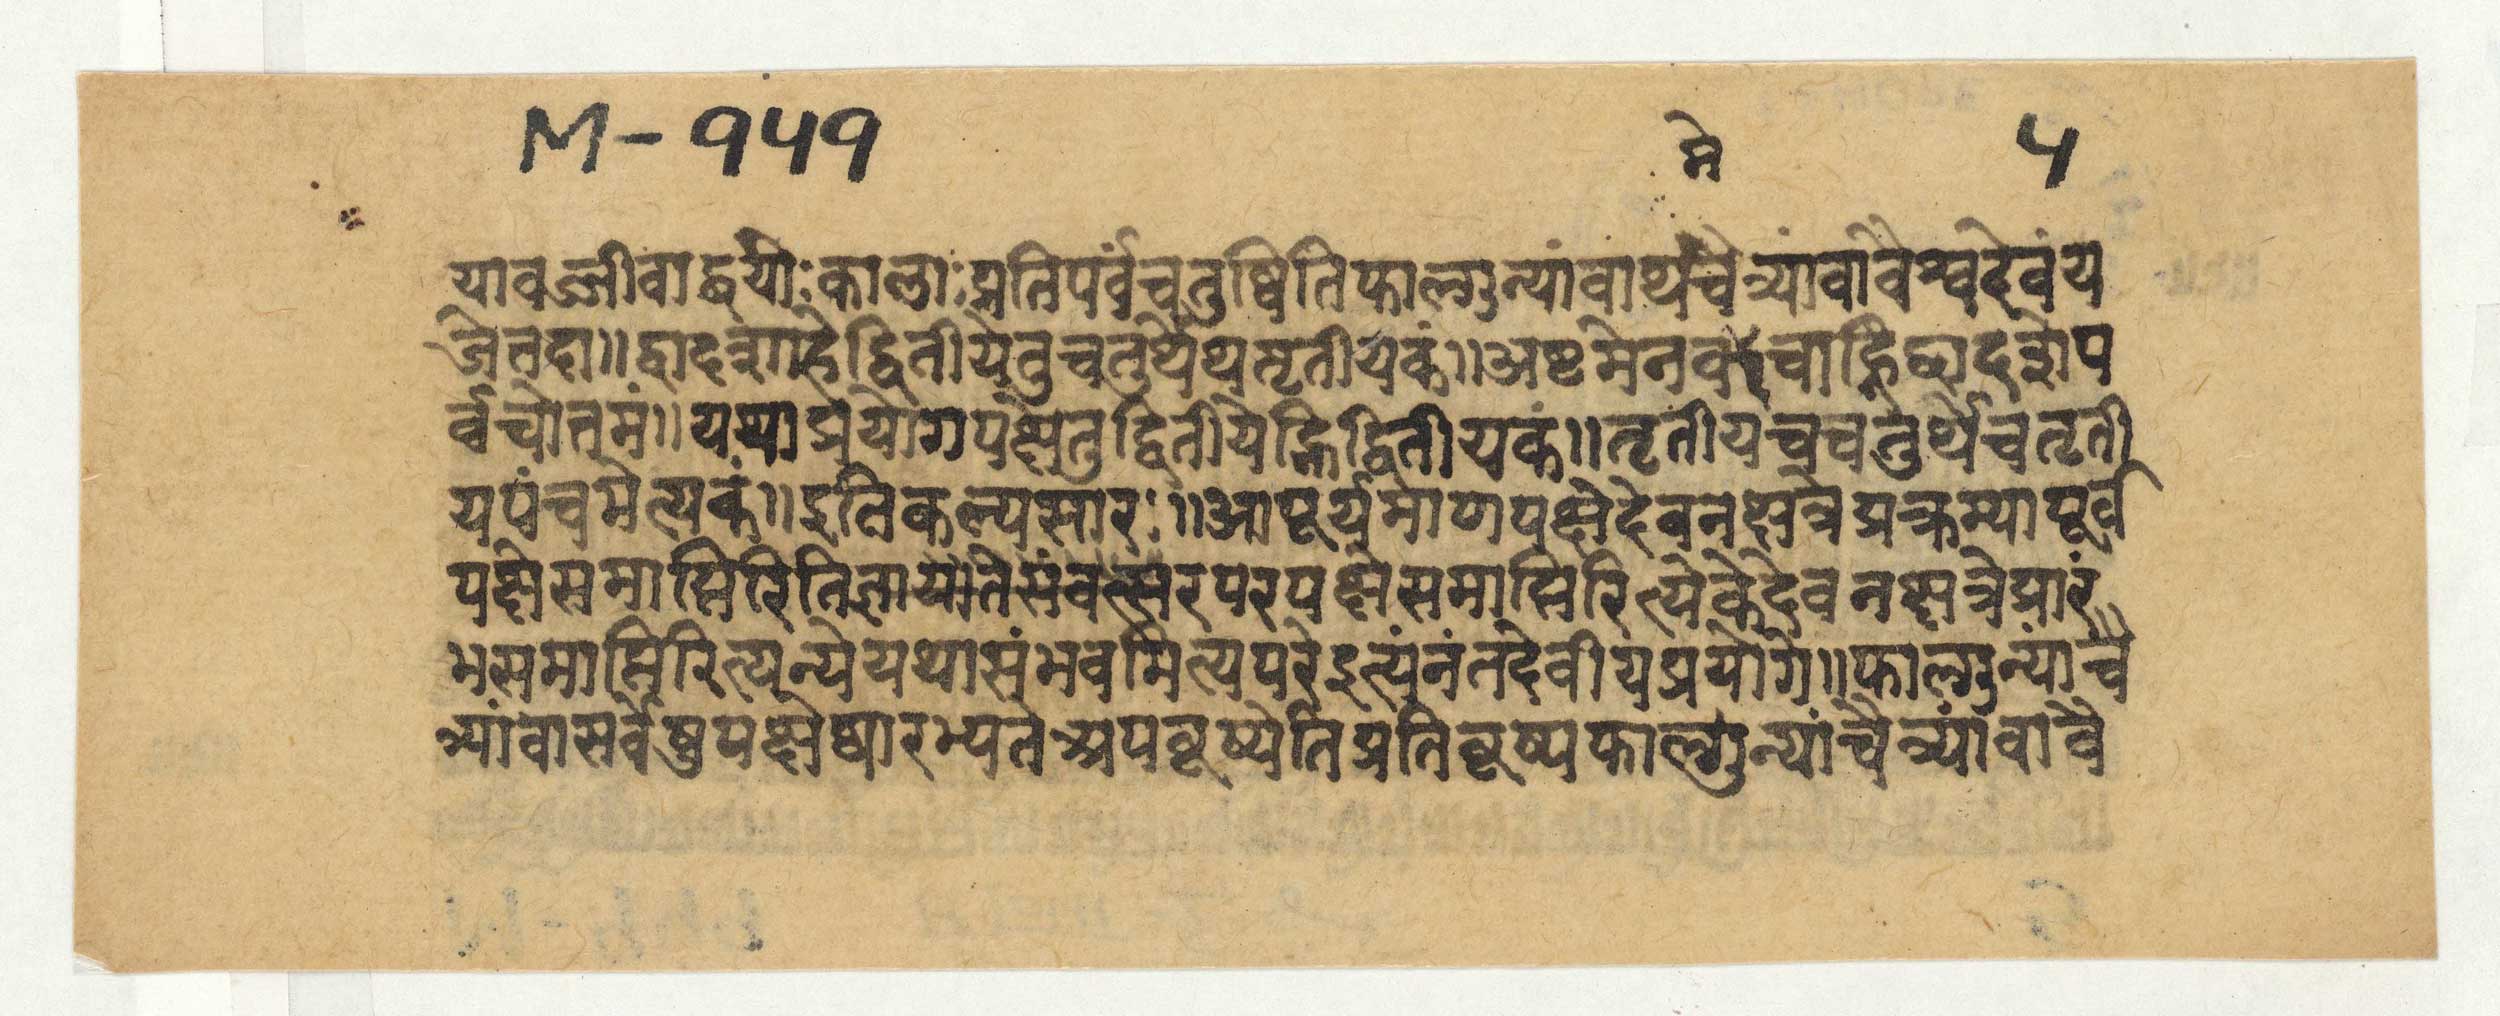 M-१५१
मे
५
यावज्जीवाद्धयोःकालाःप्रतिपर्वचतुष्वितिफाल्गुन्यांवाथचैत्र्यांवावैश्वदेवंय
जेत्तदा॥द्वादशाहेद्वितीयेतुचतुर्थेथतृतीयकं॥अष्टमेनवमेचाह्निद्वादशेप
र्वचोत्तमं॥यथाप्रयोगपक्षेतुद्वितीयेह्निद्वितीयकं॥तृतीयंचचतुर्थेचतृती
यपंचमेत्यकं॥इतिकल्पसारः॥आपूर्यमाणपक्षेदेवनक्षत्रेप्रक्रम्यापूर्व
पक्षेसमाप्तिरितिज्ञायतेसंवत्सरपरपक्षेसमाप्तिरित्येकेदेवनक्षत्रेप्रारं
भसमाप्तिरित्यन्येयथासंभवमित्यपरेइत्यनंतदेवीयप्रयोगे॥फाल्गुन्यांचै
त्र्यांवासर्वेषुपक्षेष्वारभ्यतेअपवृष्येतिप्रतिवृष्यफाल्गुन्यांचैत्र्यांवावै